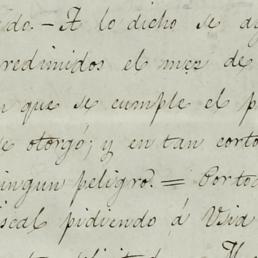 do. - A lo dicho se a
redimidos el mez de
n que se cumple el p
e otorgó; y en tan corto
ningun peligro. = Por to
iscal pidiendo á Usia